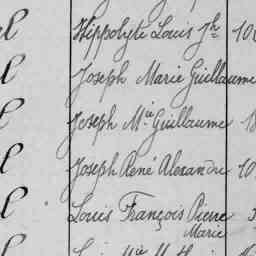 Hippolyte Louis Jh 10
l Joseph Marie Guillaume
l Joseph Mie Guillaume 1
l Joseph René Alexandre 10
l Louis François Pierre
Marie